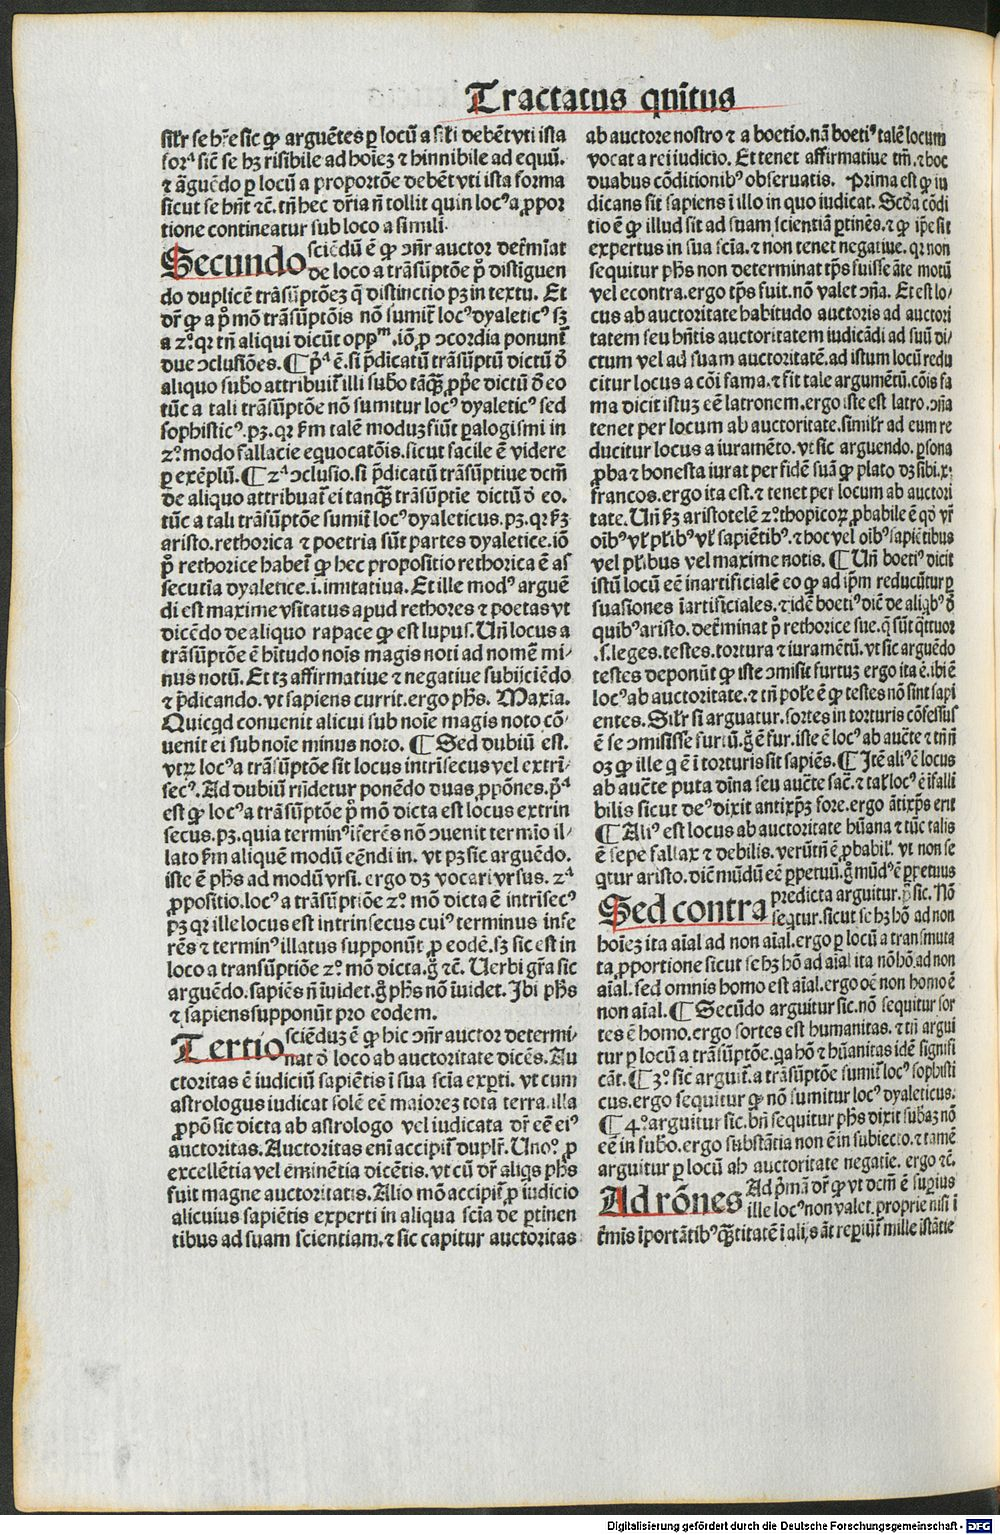 Tractatus qnītus
silr̄ se hr̄e sic ꝙ arguētes ꝑ locū a sĩli debēt vti ista
forᵃ sicū se hꝫ risibile ad hoīeꝫ ⁊ hinnibile ad equū.
⁊ āguēdo ꝑ locū a proportōe debēt vti ista forma
sicut se hn̄t ⁊c̄. tn̄ hec dr̄ia nō tollit quin locꝰ a ꝓpor
tione contineatur sub loco a simili.
Secundo sciēdū ē ꝙ ↄn̄r auctor det̄mīat
de loco a trāsūptōe pͦ distīguen
do duplicē trāsūptōeꝫ q̄ distinctio pꝫ in textu. Et
dr̄ ꝙ a pͦ mō trāsūptōis nō sumit̄ locꝰ dyaleticꝰ sꝫ
a zͦ. qꝛ tn̄ aliqui dicūt oppᵐ. iō ꝓ ↄcordia ponunt̄
due ↄclusiōes. ¶ pᵃ ē. si p̄dicatū trāsūptū dictū ď
aliquo subͦo attribuit̄ illi subͦo tāqꝫ̄ ꝓpͥe dictū ď eo
tūc a tali trāsūptōe nō sumitur locꝰ dyaleticꝰ sed
sophisticꝰ. pꝫ. qꝛ ẜm talē moduꝫ fiūt ꝑalogismi in
zͦ. modo fallacie equocatōis. sicut facile ē videre
ꝑ exēplū. ¶ zᵃ ↄclusio. si p̄dicatū trāsūptiue dcm̄
de aliquo attribuat̄ ei tanqꝫ̄ trāsūptīe dictū ď eo.
tūc a tali trāsūptōe sumit̄ locꝰ dyaleticus. pꝫ. qꝛ ẜꝫ
aristo. rethorica ⁊ poetria sūt partes dyaletice. iō
pͦ rethorice habet̄ ꝙ hec propositio rethorica ē as
secutīa dyaletice .i. imitatiua. Et ille modꝰ arguē
di est maxime vsitatus apud rethores ⁊ poetas vt
dicēdo de aliquo rapace ꝙ est lupus. Un̄ locus a
trāsūptōe ē hitudo noīs magis noti ad nomē mi⸗
nus notū. Et tꝫ affirmatiue ⁊ negatiue subijciēdo
⁊ p̄dicando. vt sapiens currit. ergo ph̄s. Maxīa.
Quicqd conuenit alicui sub noīe magis noto cō⸗
uenit ei sub noīe minus noto. ¶ Sed dubiū est.
vtꝝ locꝰ a trāsūptōe sit locus intrīsecus vel extrī⸗
secꝰ. Ad dubiū rn̄detur ponēdo duas ꝓpōnes. pᵃ
est ꝙ locꝰ a trāsūptōe pͦ mō dicta est locus extrin
secus. pꝫ. quia terminꝰ īferēs nō ↄuenit termīo il⸗
lato ẜm aliquē modū eēndi in. vt pꝫ sic arguēdo.
iste ē ph̄s ad modū vrsi. ergo dꝫ vocari vrsus. zᵃ
ꝓpositio. locꝰ a trāsūptiōe zͦ. mō dicta ē intrīsecꝰ
pꝫ qꝛ ille locus est intrinsecus cuiꝰ terminus infe
rēs ⁊ terminꝰ illatus supponūt ꝓ eodē. sꝫ sic est in
loco a transūptiōe zͦ. mō dicta. g̊ ⁊c̄. Uerbi gr̄a sic
arguēdo. sapiēs nō īuidet. g̊ ph̄s nō īuidet. Ibi ph̄s
⁊ sapiens supponūt pro eodem.
Tertio sciēduꝫ ē ꝙ hic ↄn̄r auctor determi⸗
nat ď loco ab auctoritate dicēs. Au
ctoritas ē iudiciū sapiētis ī sua scīa exꝑti. vt cum
astrologus iudicat solē eē maiorez tota terra. illa
ꝓpō sic dicta ab astrologo vel iudicata dr̄ eē eiꝰ
auctoritas. Auctoritas enī accipit̄ duplr̄. Unoͦ. ꝓ
excellētia vel eminētia dicētis. vt cū dr̄ aliqs ph̄s
fuit magne auctoritatis. Alio mō accipit̄ ꝓ iudicio
alicuius sapiētis experti in aliqua scīa de ꝑtinen
tibus ad suam scientiam. ⁊ sic capitur auctoritas
ab auctore nostro ⁊ a boetio. nā boetiꝰ talē locum
vocat a rei iudicio. Et tenet affirmatiue tm̄. ⁊ hoc
duabus cōditionibꝰ obseruatis. Prima est ꝙ iu
dicans sit sapiens ī illo in quo iudicat. Scďa cōdi
tio ē ꝙ illud sit ad suam scientiā ꝑtinēs. ⁊ ꝙ ip̄e sit
expertus in sua scīa. ⁊ non tenet negatiue. qꝛ non
sequitur ph̄s non determinat tp̄s fuisse āte motū
vel econtra. ergo tp̄s fuit. nō valet ↄn̄a. Et est lo⸗
cus ab auctoritate habitudo auctoris ad auctori
tatem seu hn̄tis auctoritatem iudicādi ad suū di⸗
ctum vel ad suam auctoritatē. ad istum locū redu
citur locus a cōi fama. ⁊ fit tale argumētū. cōis fa
ma dicit istuꝫ eē latronem. ergo iste est latro. ↄn̄a
tenet per locum ab auctoritate. similr̄ ad eum re
ducitur locus a iuramēto. vt sic arguendo. ꝑsona
ꝓba ⁊ honesta iurat per fidē suā ꝙ plato dꝫ sibi .x.
francos. ergo ita est. ⁊ tenet per locum ab auctori
tate. Un̄ ẜꝫ aristotelē zͦ. thopicoꝝ ꝓbabile ē qď vr̄
oībꝰ vl̄ pl̄ibꝰ vl̄ sapiētibꝰ. ⁊ hoc vel oībꝰ sapiētibus
vel pl̄ibus vel maxime notis. ¶ Un̄ boetiꝰ dicit
istū locū eē inartificialē eo ꝙ ad ip̄m reducūtur ꝑ
suasiones īartificiales. ⁊ idē boetiꝰ diē de aliqbꝰ ď
quibꝰ aristo. det̄minat pͦ rethorice sue. q̄ sūt qͣttuor
.s. leges. testes. tortura ⁊ iuramētū. vt sic arguēdo
testes deponūt ꝙ iste ↄmisit furtuꝫ ergo ita ē. ibi ē
locꝰ ab auctoritate. ⁊ tn̄ pōt̄ ē ꝙ testes nō sint sapi
entes. Silr̄ si arguatur. sortes in torturis cōfessus
ē se ↄmisisse furtū. g̊ ē fur. iste ē locꝰ ab aucte ⁊ tn̄ nō
oꝫ ꝙ ille q ē ī torturis sit sapiēs. ¶ Itē aliꝰ ē locus
ab aucte puta dīna seu aucte sac̄. ⁊ tal̄ locꝰ ē īfalli
bilis sicut deꝰ dixit antixp̄ꝫ fore. ergo ātixp̄s erit
¶ Aliꝰ est locus ab auctoritate hūana ⁊ tūc talis
ē sepe fallax ⁊ debilis. verūtn̄ ē ꝓbabil̄. vt non se
qtur aristo. diē mūdū eē ꝑpetuū. g̊ mūdꝰ ē ꝑpetuus
Sed contra predicta arguitur. pͦ sic. Nō
seqtur. sicut se hꝫ hō ad non
hoīeꝫ ita aīal ad non aīal. ergo ꝑ locū a transmuta
ta ꝓportione sicut se hꝫ hō ad aīal ita nō hō ad non
aīal. sed omnis homo est aīal. ergo oē non homo ē
non aīal. ¶ Secūdo arguitur sic. nō sequitur sor
tes ē homo. ergo sortes est humanitas. ⁊ tn̄ argui
tur ꝑ locū a trāsūptōe. qa hō ⁊ hūanitas idē signifi
cāt. ¶ 3ͦ. sic arguit̄. a trāsūptōe sumit̄ locꝰ sophisti
cus. ergo sequitur ꝙ nō sumitur locꝰ dyaleticus.
¶ 4ͦ. arguitur sic. bn̄ sequitur ph̄s dixit subaꝫ nō
eē in subͦo. ergo substātia non ē in subiecto. ⁊ tamē
arguitur ꝑ locū ab auctoritate negatīe. ergo ⁊c̄.
Ad rōnes Ad pͥmā dr̄ ꝙ vt dcm̄ ē suꝑius
ille locꝰ non valet. proprie nisi ī
t̄mis īportātibꝰ qꝫ̄titatē ī ali, s āt reꝑiūt̄ mille īstātie
Digitalisierung gefördert durch die Deutsche Forschungsgemeinschaft - DFG